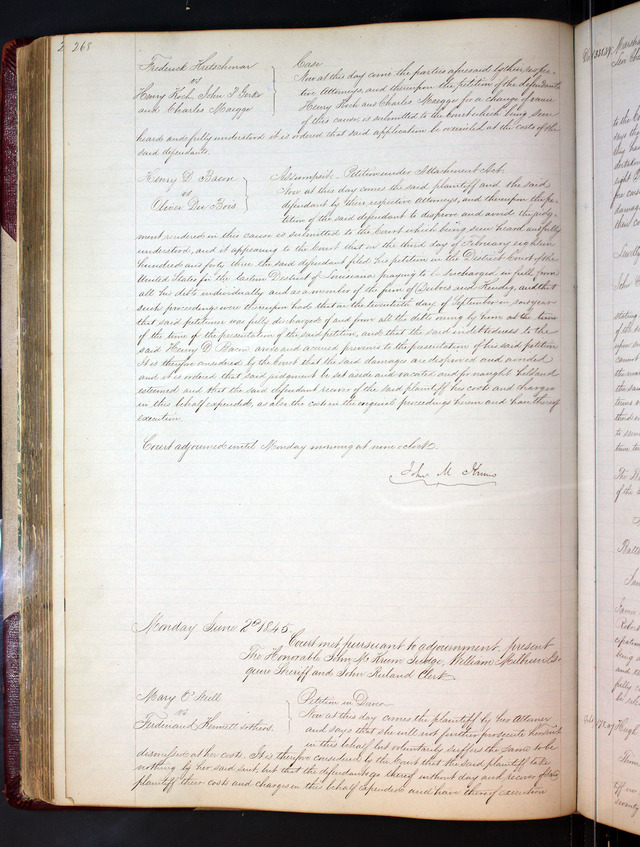 268
Frederick Hutschmar } Case
vs Now at this day come the parties aforesaid by their respec-
Henry Koch, John F tive Attorneys, and thereupon the petition of the defendants
and Charles Maegge Henry Koch and Charles Maegge for a change of venue
of this cause, is submitted to the Court which being seen
heard and fully understood it is ordered that said application be overruled at the costs of the
said defendants.
Henry D. Bacon } Assumpsit - Petition under Attachment Act.
vs Now at this day comes the said plaintiff and the said
Oliver Du Bois defendant by their respective attorneys, and thereupon the pe-
tition of the said defendant to disprove and avoid the judg-
ment rendered in this cause is submitted to the Court which being seen heard and fully
understood, and it appearing to the Court that on the third day of February eighteen
hundred and forty three the said defendant filed his petition in the District Court of the
United States for the Eastern District of Louisiana praying to be discharged in full from
all his debts individually and as a member of the firm of Dubois and and that
such proceedings were thereupon had that on the twentieth day of September in same year
that said petitioner was fully discharged of and from all the debts owing by him at the time
of the time of the presentation of the said petition, and that the said indebtedness to the
said Henry D Bacon arose and accrued previous to the presentation of his said petition
It is therefore considered by the Court that the said damages are disproved and avoided
and it is ordered that said judgment be set aside and vacated and for naught held and
esteemed and that the said defendant recover of the said plaintiff his costs and charges
in this behalf expended, as also the costs in the original proceedings herein and have thereof
execution
Court adjourned until Monday morning at nine o'clock.
John M Krum
Monday June 2d 1845.
Court met pursuant to adjournment, present
The Honorable John M. Krum Judge, William Milburn Es-
quire Sheriff and John Ruland Clerk
Mary O'Neill } Petition in Dower
vs Now at this day comes the plaintiff by her Attorney
Ferdinand Kennett & others. and says that she will not further prosecute her suit
in this behalf but voluntarily suffers the same to be
dismissed at her costs. It is therefore considered by the Court that the said plaintiff take
nothing by her said suit, but that the defendants go thereof without day and recover of said
plaintiff their costs and charges in this behalf expended and have thereof execution